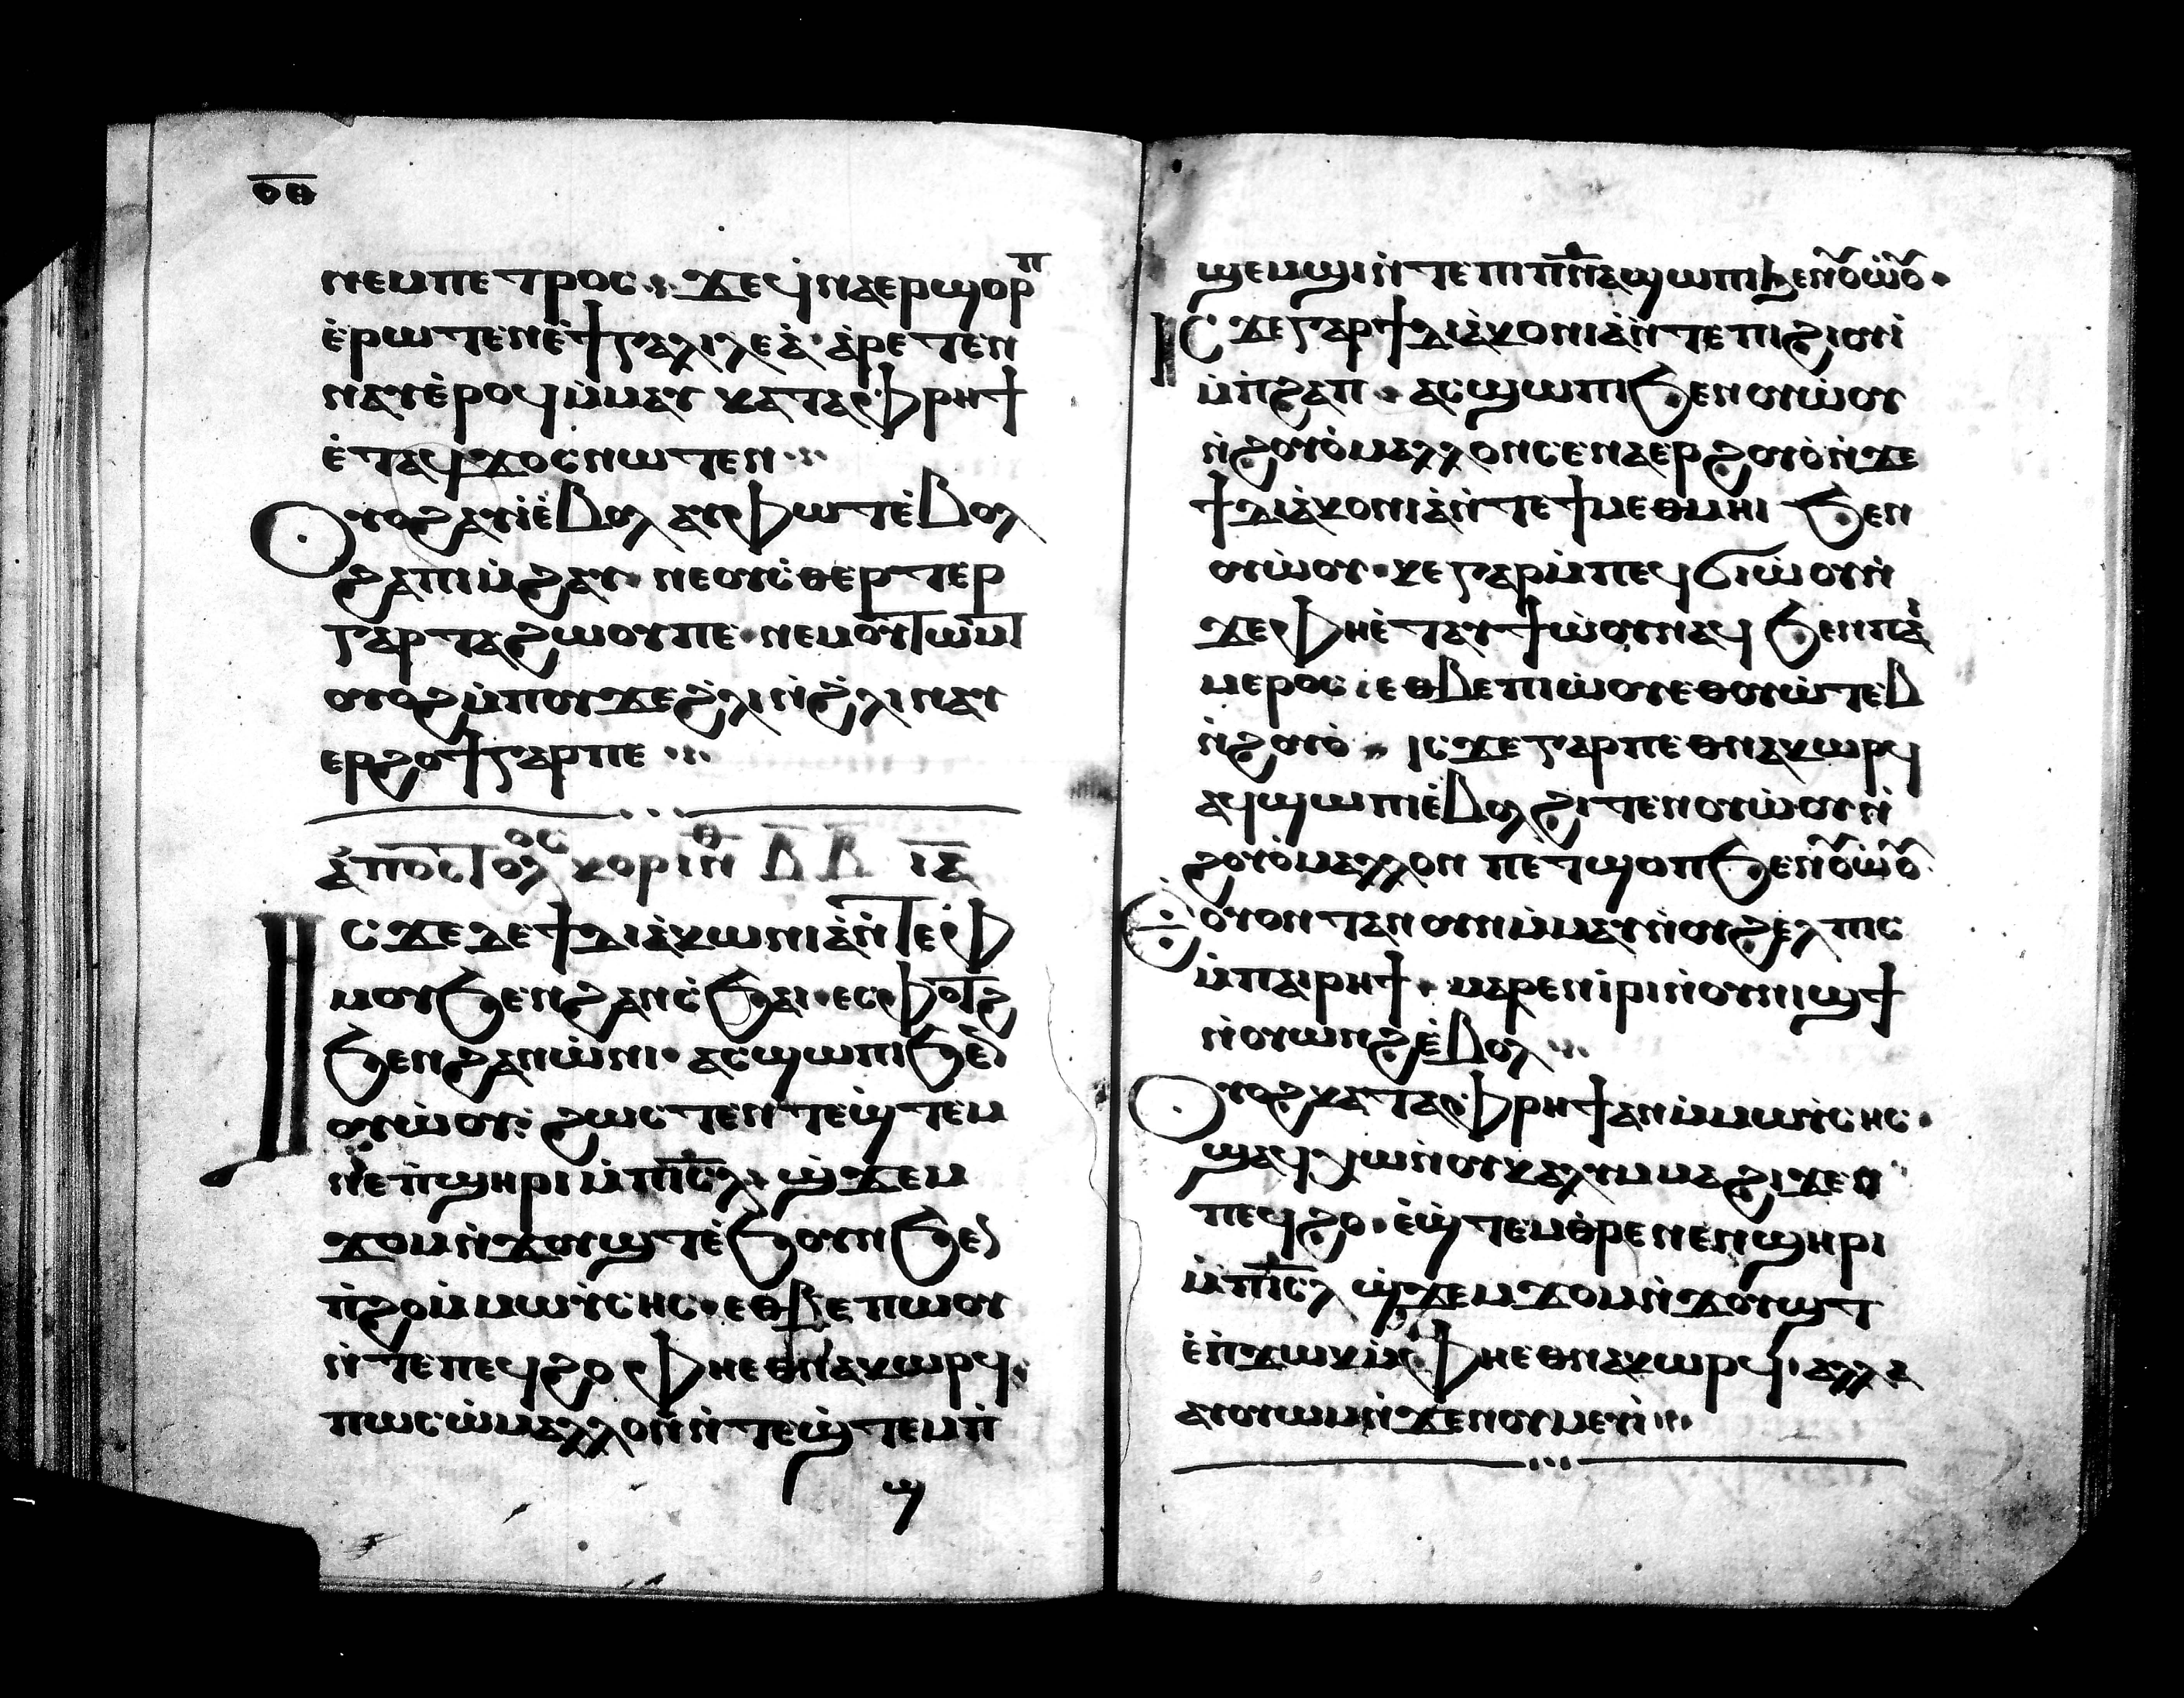 ⲟⲑ
ⲛⲉⲙⲡⲉⲧⲣⲟⲥ · ϫⲉϥⲛⲁⲉⲣϣⲟⲣⲡ
ⲉ̀ⲣⲱⲧⲉⲛⲉ̀ϯⲅⲁⲗⲓⲗⲉⲁ̀ · ⲁ̀ⲣⲉⲧⲉⲛ
ⲛⲁⲩⲉ̀ⲣⲟϥⲙ̀ⲙⲁⲩ ⲕⲁⲧⲁⲫⲣⲏϯ
ⲉ̀ⲧⲁϥϫⲟⲥⲛⲱⲧⲉⲛ ⁘
Ⲟⲩⲟϩⲁⲩⲓ̀ⲉ̀ⲃⲟⲗ ⲁⲩⲫⲱⲧⲉ̀ⲃⲟⲗ
ϩⲁⲡⲓⲙ̀ϩⲁⲩ · ⲛⲉⲟⲩⲥ̀ⲑⲉⲣⲧⲉⲣ
ⲅⲁⲣⲧⲁϩⲱⲟⲩⲡⲉ · ⲛⲉⲙⲟⲩⲧⲱⲙⲧ
ⲟⲩⲟϩⲙ̀ⲡⲟⲩϫⲉϩ̀ⲗⲓⲛ̀ϩ̀ⲗⲓ ⲛⲁⲩ
ⲉⲣϩⲟϯⲅⲁⲣⲡⲉ ⁘
ⲁ̀ⲡⲟⲥⲧⲟⲗⲟⲥ ⲕⲟⲣⲓⲛⲑ ⲃ̅ ⲃ̅ ⲓⲁ̅
Ⲓⲥϫⲉⲇⲉϯⲇⲓⲁ̀ⲕⲱⲛⲓⲁ̀ⲛ̀ⲧⲉⲫ
ⲙⲟⲩϧⲉⲛϩⲁⲛⲥ̀ϧⲁⲓ · ⲉⲥⲫⲟⲧϩ
ϧⲉⲛϩⲁⲛⲱ̀ⲛⲓ · ⲁⲥϣⲱⲡⲓϧⲉⲛ
ⲟⲩⲱ̀ⲟⲩ : ϩⲱⲥⲧⲉⲛⲧⲉϣ̀ⲧⲉⲙ
ⲛⲉⲛ̀ϣⲏⲣⲓ ⲙ̀ⲡⲓⲥ̅ⲗ̅ · ϣ̀ϫⲉⲙ
ϫⲟⲙⲛ̀ϫⲟⲩϣⲧⲉ̀ϧⲟⲩⲛϧⲉⲛ
ⲡ̀ϩⲟⲙ̀ⲙⲱⲩ̀ⲥⲏⲥ · ⲉⲑⲃⲉⲡⲱⲟⲩ
ⲛ̀ⲧⲉⲡⲉϥϩⲟ ⲫⲏⲉⲑⲛⲁⲕⲱⲣϥ ·
ⲡⲱⲥⲱ̀ⲙⲁⲗⲗⲟⲛⲛ̀ⲧⲉϣ̀ⲧⲉⲙⲡ̀
ϣ
ϣⲉⲙϣⲓⲛ̀ⲧⲉⲡⲓⲡⲛ̅ⲁ̅ϣⲱⲡⲓϧⲉⲛⲟⲩⲱ̀ⲟⲩ ·
Ⲓⲥϫⲉⲅⲁⲣϯⲇⲓⲁ̀ⲕⲟⲛⲓⲁ̀ⲛ̀ⲧⲉⲡⲓϩⲓⲟⲩⲓ̀
ⲙ̀ⲡ̀ϩⲁⲡ · ⲁⲥϣⲱⲡⲓϧⲉⲛⲟⲩⲱ̀ⲟⲩ
ⲛ̀ϩⲟⲩⲟ̀ⲙⲁⲗⲗⲟⲛⲥⲉⲛⲁⲉⲣϩⲟⲩⲟ̀ⲛ̀ϫⲉ
ϯⲇⲓⲁ̀ⲕⲟⲛⲓⲁ̀ⲛ̀ⲧⲉϯⲙⲉⲑⲙⲏⲓ ϧⲉⲛ
ⲟⲩⲱ̀ⲟⲩ · ⲕⲉⲅⲁⲣⲙ̀ⲡⲉϥϭⲓⲱ̀ⲟⲩⲛ̀
ϫⲉⲫⲏⲉ̀ⲧⲁⲩϯⲱ̀ⲟⲩⲛⲁϥ ϧⲉⲛⲡⲁⲓ
ⲙⲉⲣⲟⲥ · ⲉⲑⲃⲉⲡⲓⲱ̀ⲟⲩⲉⲑⲟⲩⲱ̀ⲧⲉⲃ
ⲛ̀ϩⲟⲩⲟ̀ · ⲓⲥϫⲉⲅⲁⲣⲡⲉⲑⲛⲁⲕⲱⲣϥ
ⲁϥϣⲱⲡⲓⲉ̀ⲃⲟⲗϩⲓⲧⲉⲛⲟⲩⲱ̀ⲟⲩⲛ̀
ϩⲟⲩⲟ̀ⲙⲁⲗⲗⲟⲛ ⲡⲉⲧϣⲟⲡϧⲉⲛⲟⲩⲱ̀ⲟⲩ
Ⲉⲟⲩⲟⲛⲧⲁⲛⲟⲩⲛⲙ̀ⲙⲁⲩⲛ̀ⲟⲩϩⲉⲗⲡⲓⲥ
ⲙ̀ⲡⲁⲓⲣⲏϯ · ⲙⲁⲣⲉⲛⲓ̀ⲣⲓⲛ̀ⲟⲩⲛⲓϣϯ
ⲛ̀ⲟⲩⲱⲛϩⲉ̀ⲃⲟⲗ ⁘
Ⲟⲩⲟϩⲕⲁⲧⲁⲫⲣⲏϯⲁⲛⲙ̀ⲙⲱⲩ̀ⲥⲏⲥ ·
ϣⲁϥⲭⲱⲛ̀ⲟⲩⲕⲁⲗⲩⲙⲙⲁϩⲓϫⲉⲛ
ⲡⲉϥϩⲟ · ⲉ̀ϣ̀ⲧⲉⲙⲑ̀ⲣⲉⲛⲉⲛϣⲏⲣⲓ
ⲙ̀ⲡⲓⲥ̅ⲗ̅ ϣ̀ϫⲉⲙϫⲟⲙⲛ̀ϫⲟⲩϣⲧ
ⲉ̀ⲡ̀ϫⲱⲕⲙ̀ⲫⲏⲉⲑⲛⲁⲕⲱⲣϥ · ⲁⲗⲗⲁ
ⲁⲩⲟⲩⲱⲙⲛ̀ϫⲉⲛⲟⲩⲙⲉⲩⲓ̀ ⁘